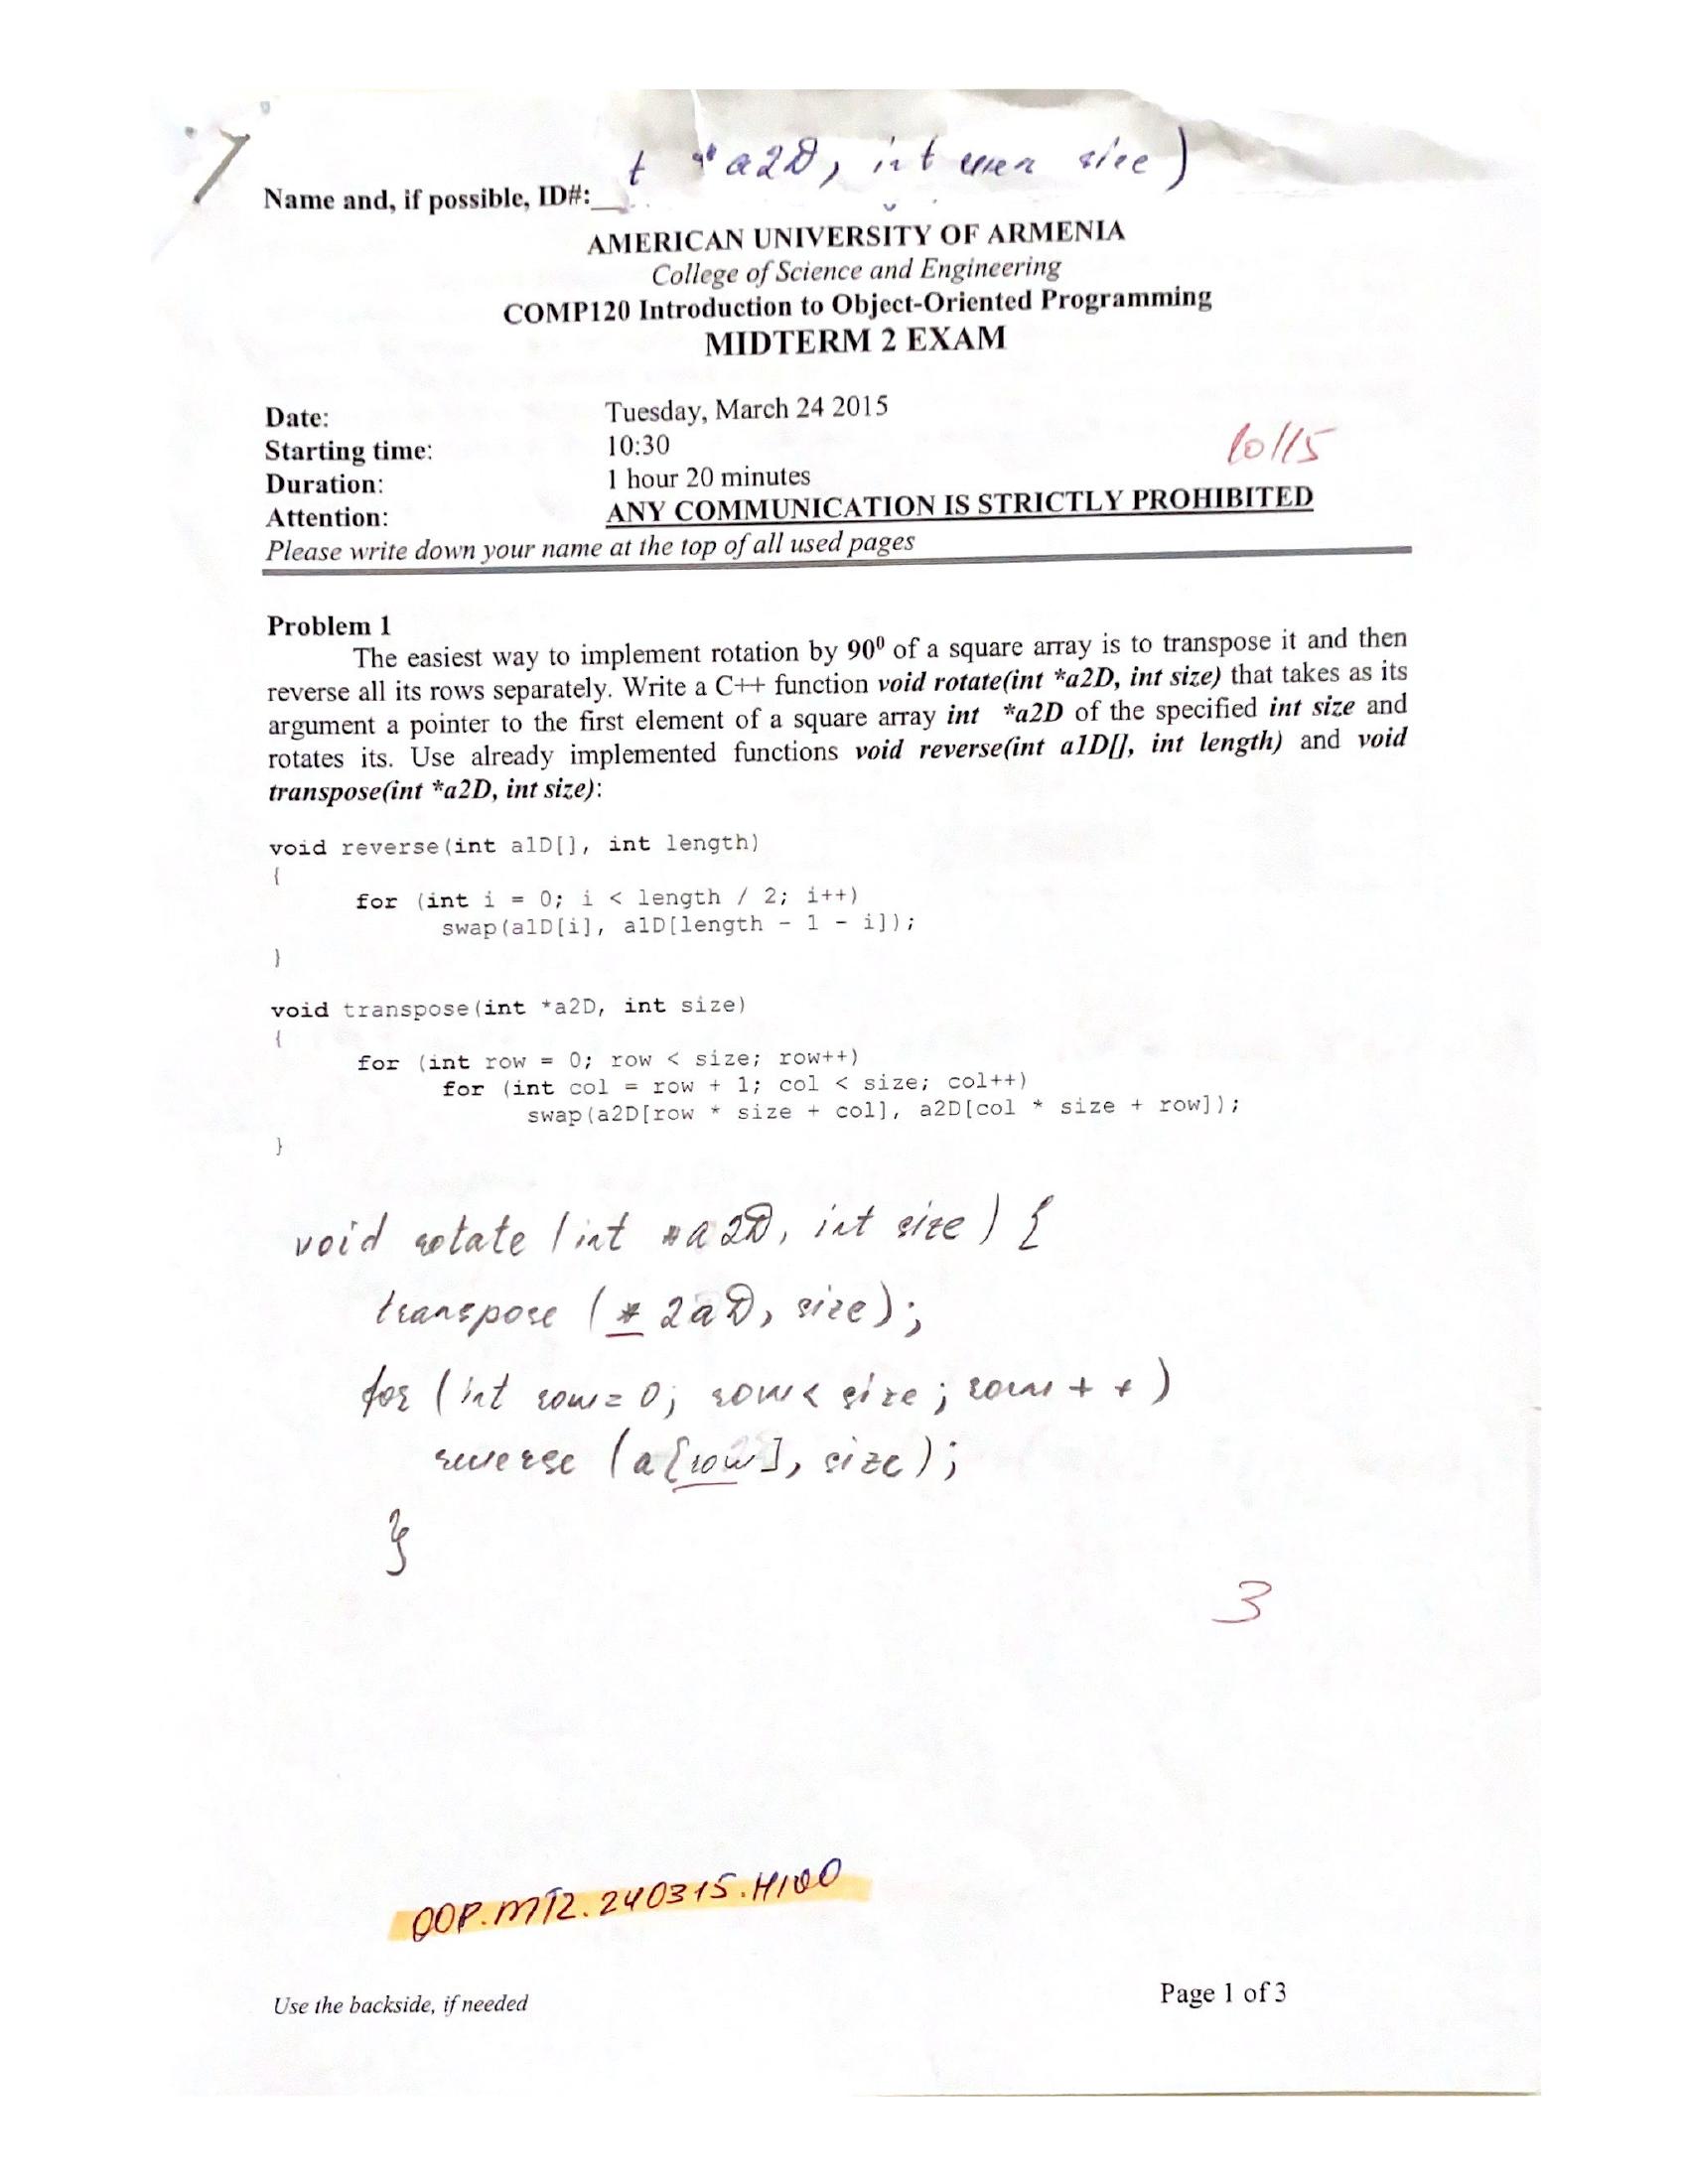 7
t *a2D, int size)
Name and, if possible, ID#:
AMERICAN UNIVERSITY OF ARMENIA
College of Science and Engineering
COMP120 Introduction to Object-Oriented Programming
MIDTERM 2 EXAM
Date: Tuesday, March 24 2015
Starting time: 10:30
10/15
Duration: 1 hour 20 minutes
Attention: ANY COMMUNICATION IS STRICTLY PROHIBITED
Please write down your name at the top of all used pages
Problem 1
The easiest way to implement rotation by 90⁰ of a square array is to transpose it and then
reverse all its rows separately. Write a C++ function void rotate(int *a2D, int size) that takes as its
argument a pointer to the first element of a square array int *a2D of the specified int size and
rotates its. Use already implemented functions void reverse(int a1D[], int length) and void
transpose(int *a2D, int size):
void reverse(int a1D[], int length)
{
for (int i = 0; i < length / 2; i++)
swap(a1D[i], a1D[length - 1 - i]);
}
void transpose(int *a2D, int size)
{
for (int row = 0; row < size; row++)
for (int col = row + 1; col < size; col++)
swap(a2D[row * size + col], a2D[col * size + row]);
}
void rotate (int *a2D, int size) {
transpose (* 2aD, size);
for (int row = 0; row < size; row++)
reverse (a[row], size);
}
3
OOP.MT2.240315.H100
Use the backside, if needed
Page 1 of 3